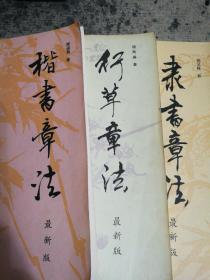 楷書章法
最新版
行草章法
最新版
隶書章法
最新版